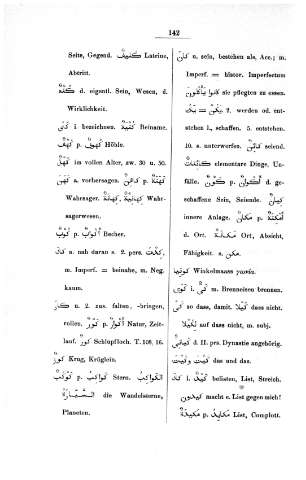 142
Seite, Gegend. كَنِيفٌ Latrine,
Abtritt.
كُنْهٌ d. eigentl. Sein, Wesen, d.
Wirklichkeit.
كَنَى i bezeichnen. كُنْيَةٌ Beiname.
كَهْفٌ p. كُهُوفٌ Höhle.
كَهْلٌ im vollen Alter, zw. 30 u. 50.
كَهَنَ a. vorhersagen. كَاهِنٌ p. كَهَنَةٌ
Wahrsager. كِهَانَةٌ, كَهَانَةٌ Wahr-
sagerwesen.
كُوبٌ p. أَكْوَابٌ Becher.
كَادَ a. nah daran s. 2. pers. كِدْتَ,
m. Imperf. = beinahe, m. Neg.
kaum.
كَارَ u. 2. zus. falten, -bringen,
rollen. كَوْرٌ p. أَكْوَارٌ Natur, Zeit-
lauf. كُورٌ Schlupfloch. T. 108, 16.
كُوزٌ Krug, Krüglein.
كَوْكَبٌ p. كَوَاكِبُ Stern. الكَوَاكِبُ
السَّيَّارَةُ die Wandelsterne,
Planeten.
كَانَ u. sein, bestehen als, Acc.; m.
Imperf. = histor. Imperfectum
كَانُوا يَأْكُلُونَ sie pflegten zu essen.
يَكُ = يَكُنْ. 2. werden od. ent-
stehen l., schaffen. 5. entstehen.
10. s. unterwerfen. كَائِنٌ seiend.
كَائِنَاتٌ elementare Dinge, Un-
fälle. كَوْنٌ p. أَكْوَانٌ d. ge-
schaffene Sein, Seiende. كِيَانٌ
innere Anlage. مَكَانٌ p. أَمْكِنَةٌ
d. Ort. مَكَانَةٌ Ort, Absicht,
Fähigkeit. s. مكن.
كونيا Winkelmaass
كَوَى i. كَيٌّ m. Brenneisen brennen.
كَيْ so dass, damit. كَيْلَا dass nicht.
لِكَيْلَا auf dass nicht, m. subj.
كَيَانِيٌّ d. II. prs. Dynastie angehörig.
كَيْتَ وَكَيْتَ das und das.
كَادَ i. كَيْدٌ belisten, List, Streich.
كيدون macht e. List gegen mich!
مَكِيدَةٌ p. مَكَايِدُ List, Complott.